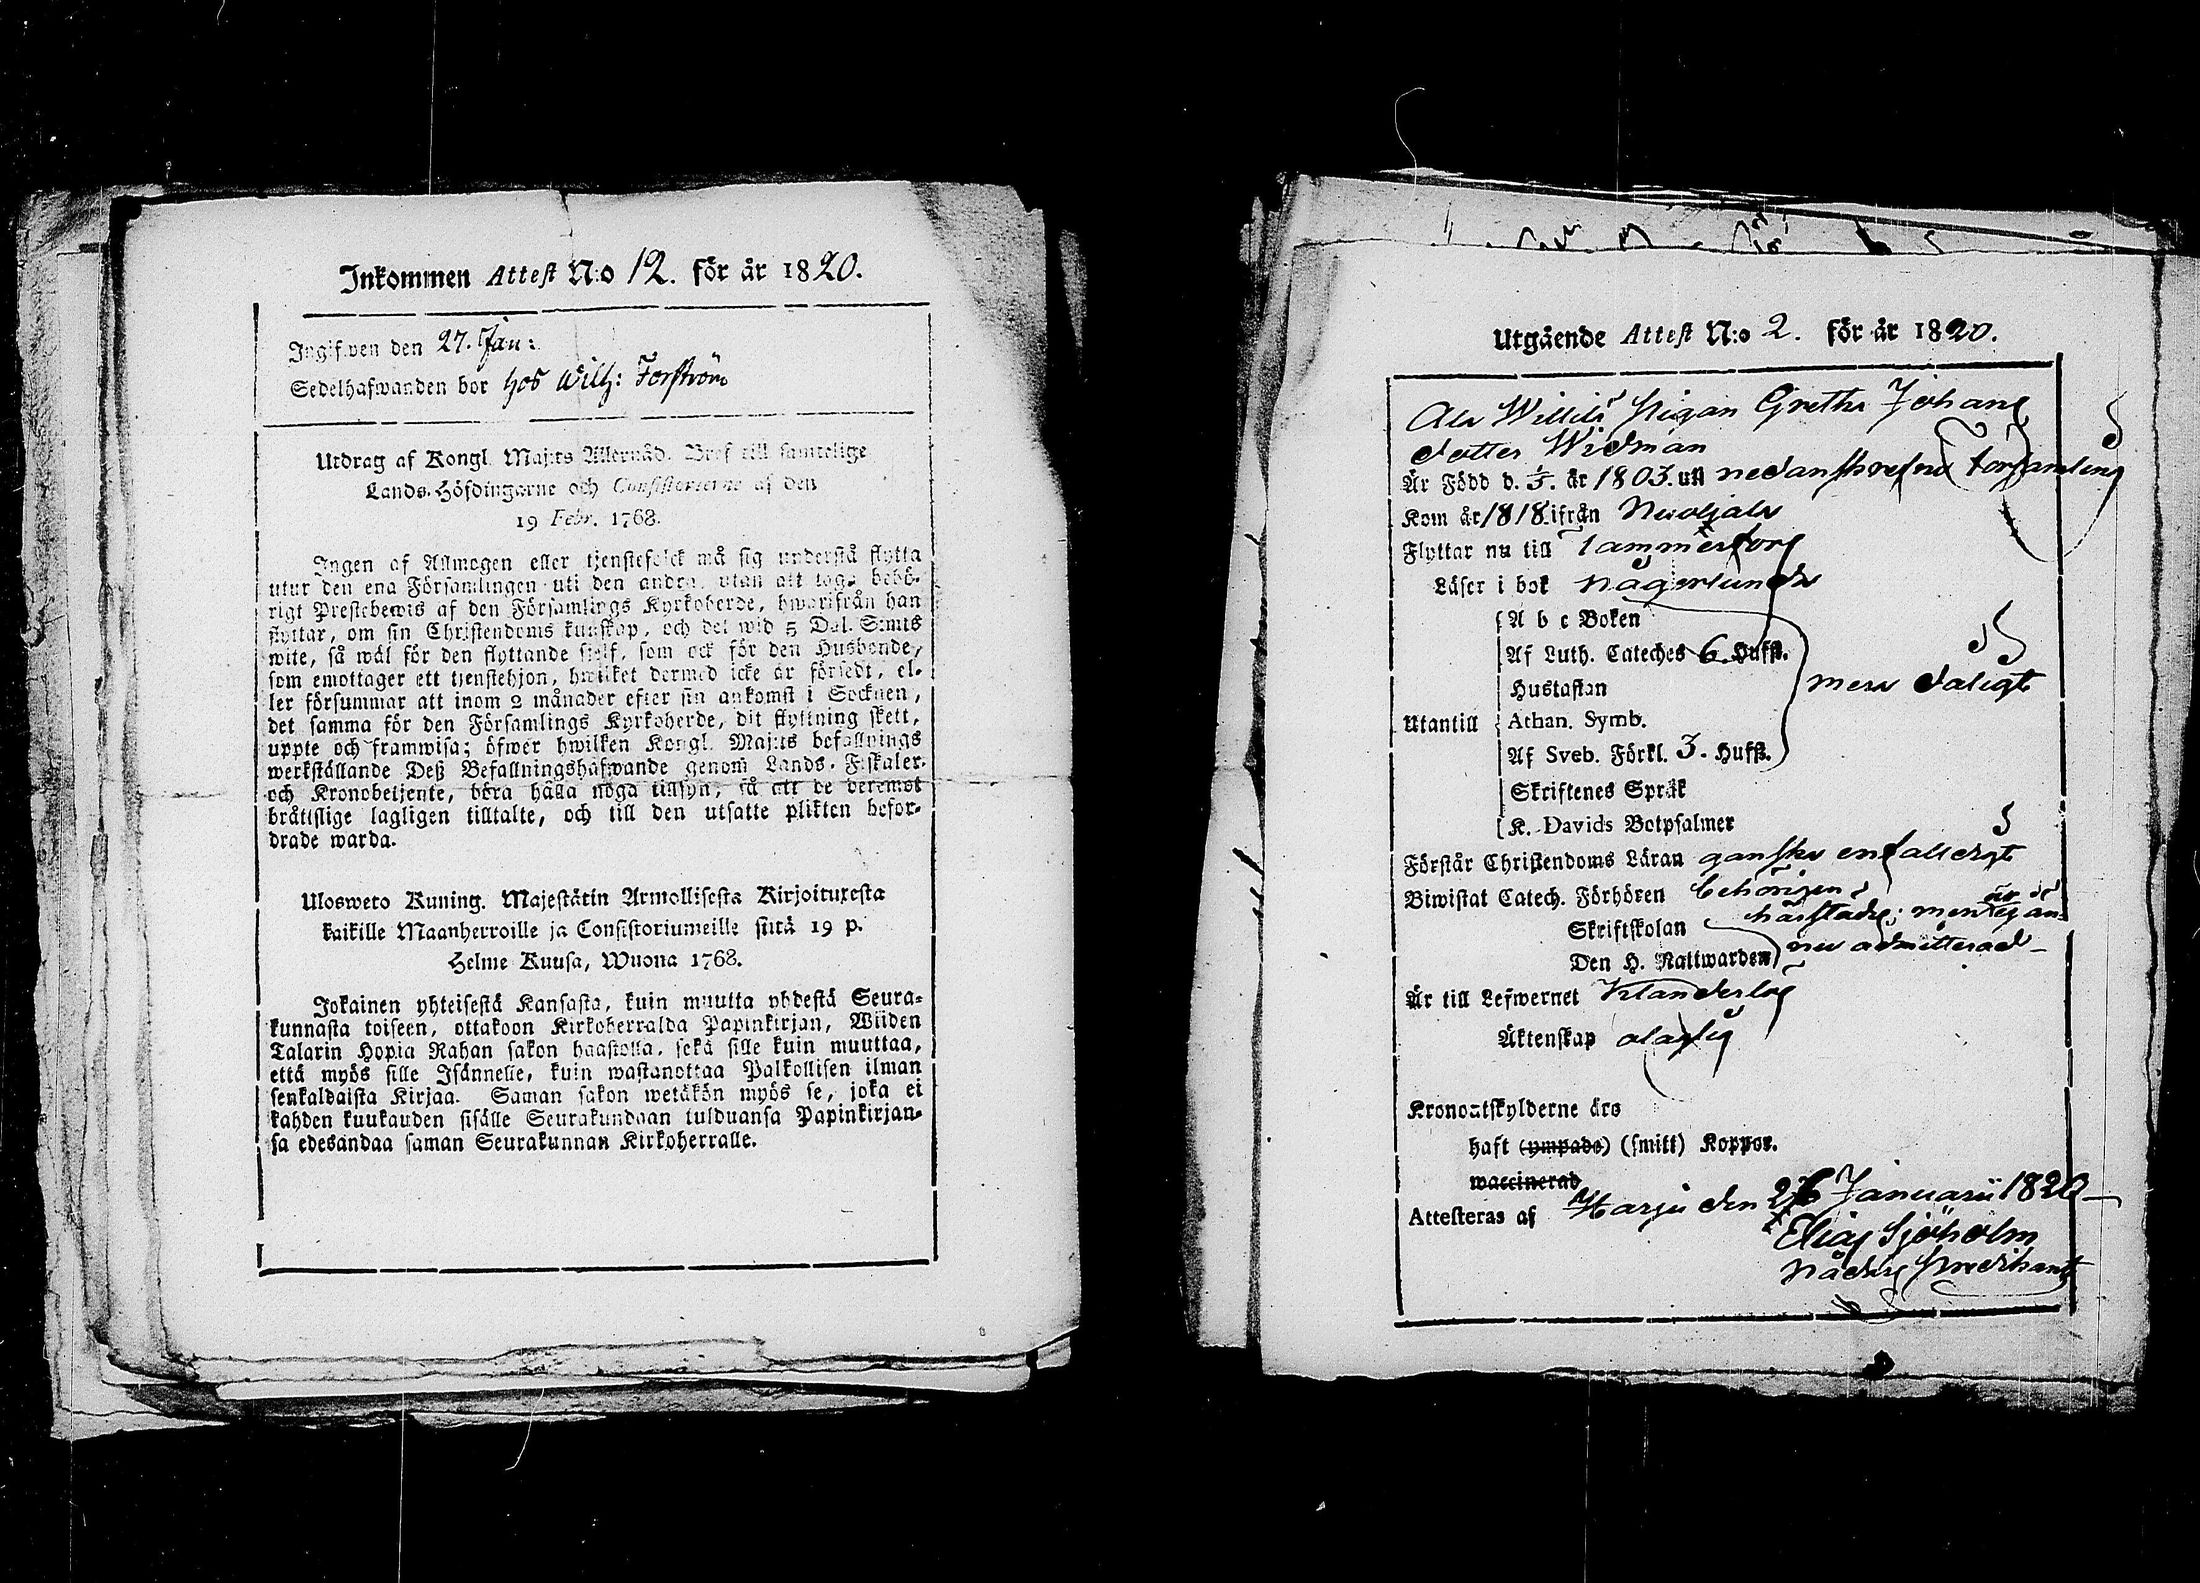 Inkommen Attest N:o 12. för år 1820.
Ingifwen den 27. Jan:
Sedelhafwanden bor hos Wilh: Forström
Utdrag af Kongl. Maj:ts Allernåd. Bref till samtelige
Lands-Höfdingarne och Consistorierne af den
19 Febr. 1768.
Ingen af Allmogen eller tjenstefolck må sig understå flytta
utur den ena Församlingen uti den andra, utan att taga behö-
rigt Prestebewis af den Församlings Kyrkoherde, hwarifrån han
flyttar, om sin Christendoms kunskap, och det wid 5 Dal. S:mts
wite, så wäl för den flyttande sjelf, som ock för den Husbonde,
som emottager ett tjenstehjon, hwilket dermed icke är försedt, el-
ler försummar att inom 2 månader efter sin ankomst i Socknen,
det samma för den Församlings Kyrkoherde, dit flyttning skett,
uppte och framwisa; öfwer hwilken Kongl. Maj:ts befallnings
werkställande Deß Befallningshafwande genom Lands-Fiskaler
och Kronobetjente, böra hålla noga tillsyn, så att de deremot
bråtislige lagligen tilltalte, och till den utsatte plikten befor-
drade warda.
Ulosweto Kuning. Majestätin Armollisesta Kirjoituxesta
kaikille Maanherroille ja Consistoriumeille siitä 19 p.
Helme Kuusa, Wuona 1768.
Jokainen yhteisestä Kansasta, kuin muutta yhdestä Seura-
kunnasta toiseen, ottakoon Kirkoherralda Papinkirjan, Wiiden
Talarin Hopia Rahan sakon haastolla, sekä sille kuin muuttaa,
että myös sille Isännelle, kuin wastanottaa Palkollisen ilman
senkaldaista Kirjaa. Saman sakon wetäkön myös se, joka ei
kahden kuukauden sisälle Seurakundaan tulduansa Papinkirjan-
sa edesandaa saman Seurakunnan Kirkoherralle.
Utgående Attest N:o 2. för år 1820.
Ala Willilä Pigan Gretha Johans
dotter Widman
Är Född d. år 1803. uti nedanskrefne Församling
Kom år 1818 ifrån
Flyttar nu till Tammerfors
Läser i bok någorlunda
A b c Boken
Af Luth. Cateches 6. Hufst.
Hustaflan
mera dåligt
Utantill Athan. Symb.
Af Sveb. Förkl. 3. Hufst.
Skriftenes Språk
K. Davids Botpsalmer
Förstår Christendoms Läran ganska enfaldigt
Biwistat Catech. Förhören behörigen
Skriftskolan härstädes; men är ej än-
Den H. Nattwarden nu admitterad
Är till Lefwernet Klanderlös
Äktenskap olaglig
Kronoutskylderne äro
haft (ympade) (smitt) Koppor.
waccinerad
Attesteras af Harju den 26 Januarii 1820
Elias Sjöholm
Nådårs Predikant